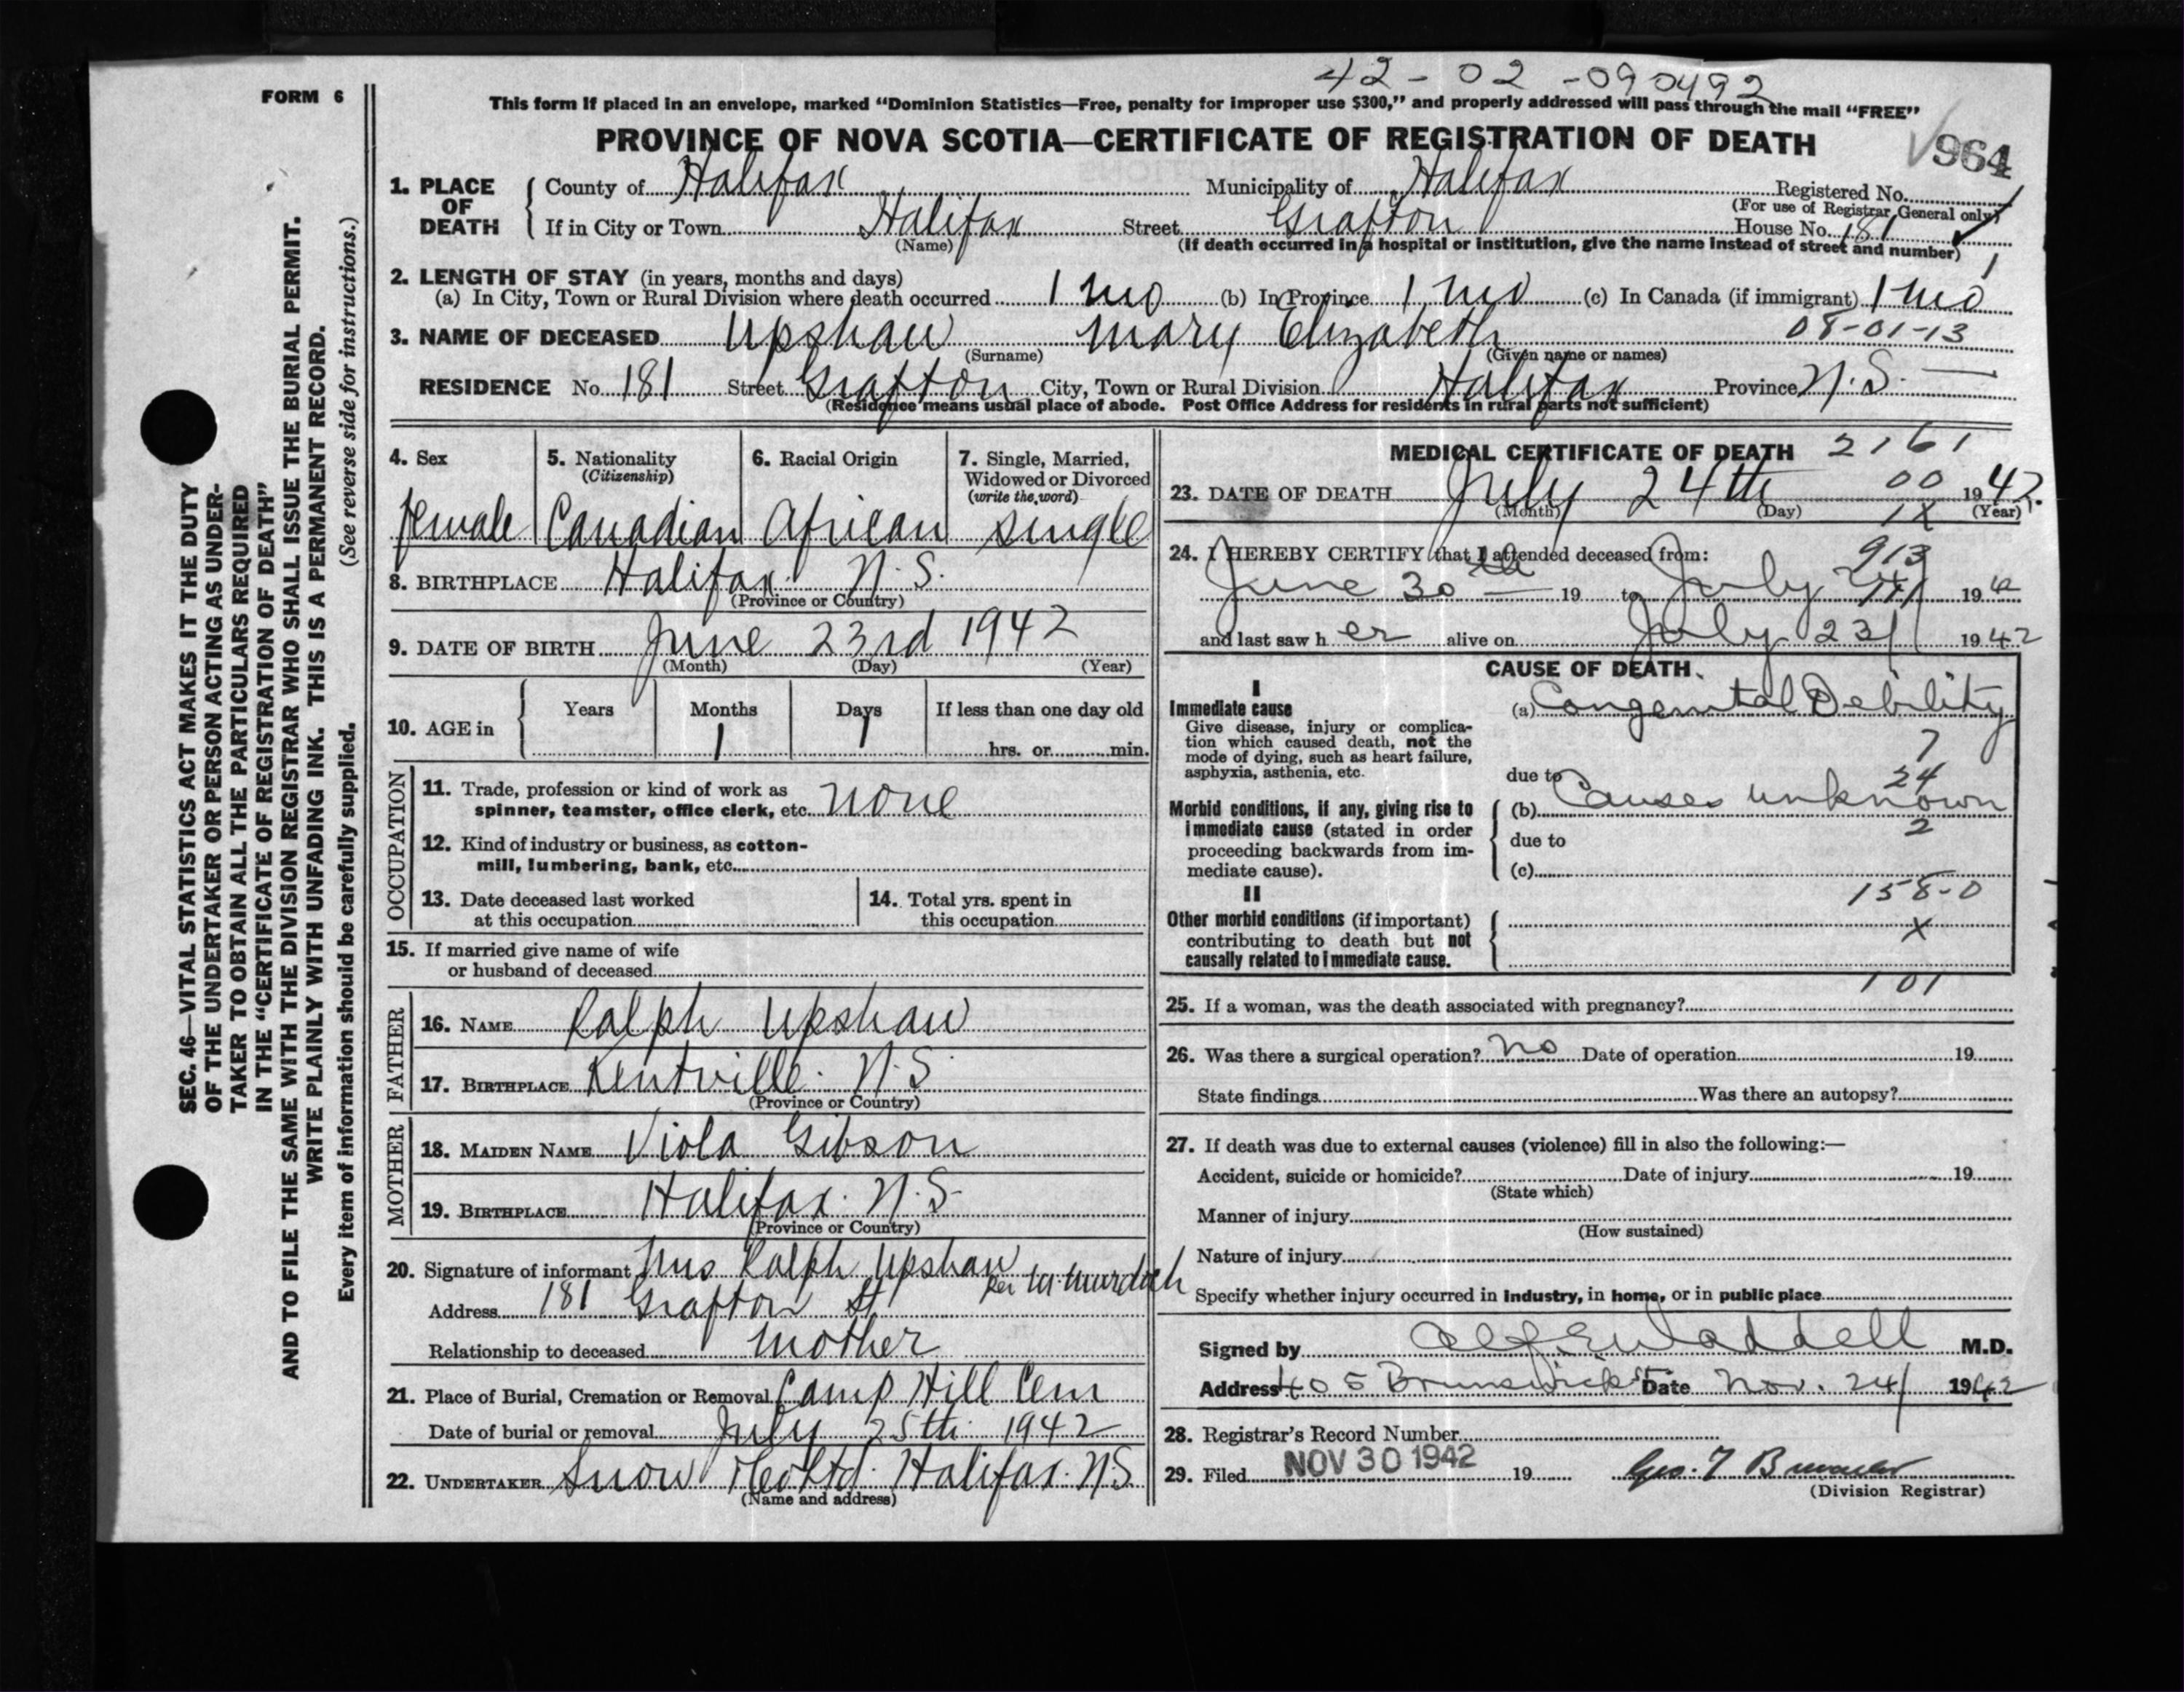 42-02-090492
FORM 6
This form if placed in an envelope, marked "Dominion Statistics—Free, penalty for improper use $300," and properly addressed will pass through the mail "FREE"
PROVINCE OF NOVA SCOTIA—CERTIFICATE OF REGISTRATION OF DEATH
964
1. PLACE OF DEATH County of Halifax Municipality of Halifax Registered No.
(For use of Registrar General only)
If in City or Town Halifax Street Grafton House No. 181
(Name) (If death occurred in a hospital or institution, give the name instead of street and number)
2. LENGTH OF STAY (in years, months and days) 1
(a) In City, Town or Rural Division where death occurred 1 mo (b) In Province 1 mo (c) In Canada (if immigrant) 1 mo
3. NAME OF DECEASED Upshaw Mary Elizabeth 08-01-13
(Surname) (Given name or names)
RESIDENCE No. 181 Street Grafton City, Town or Rural Division Halifax Province N.S.
(Residence means usual place of abode. Post Office Address for residents in rural parts not sufficient)
4. Sex 5. Nationality (Citizenship) 6. Racial Origin 7. Single, Married, Widowed or Divorced (write the word)
female Canadian African single
8. BIRTHPLACE Halifax. N.S.
(Province or Country)
9. DATE OF BIRTH June 23rd 1942
(Month) (Day) (Year)
10. AGE in Years Months Days If less than one day old
1 1 hrs. or min.
OCCUPATION
11. Trade, profession or kind of work as
spinner, teamster, office clerk, etc. none
12. Kind of industry or business, as cotton-
mill, lumbering, bank, etc.
13. Date deceased last worked
at this occupation
14. Total yrs. spent in
this occupation
15. If married give name of wife
or husband of deceased
FATHER
16. NAME Ralph Upshaw
17. BIRTHPLACE Kentville. N.S
(Province or Country)
MOTHER
18. MAIDEN NAME Viola Gibson
19. BIRTHPLACE Halifax. N.S.
(Province or Country)
20. Signature of informant Mrs Ralph Upshaw
per M. Murdoch
Address 181 Grafton St
Relationship to deceased mother
21. Place of Burial, Cremation or Removal Camp Hill Cem
Date of burial or removal July 25th 1942
22. UNDERTAKER Snow & Co Ltd. Halifax. N.S
(Name and address)
MEDICAL CERTIFICATE OF DEATH 2161
23. DATE OF DEATH July 24th 00 1942.
(Month) (Day) 1X (Year)
24. I HEREBY CERTIFY that I attended deceased from: 913
June 30th 19 to July 24/ 1942
and last saw her alive on July 23/ 1942
CAUSE OF DEATH
I
Immediate cause (a) Congenital Debility
Give disease, injury or complica-
tion which caused death, not the
mode of dying, such as heart failure,
asphyxia, asthenia, etc.
7
due to 24
Morbid conditions, if any, giving rise to
immediate cause (stated in order
proceeding backwards from im-
mediate cause).
(b) Causes unknown
2
due to
(c)
158-0
II
Other morbid conditions (if important)
contributing to death but not
causally related to immediate cause.
X
101
25. If a woman, was the death associated with pregnancy?
26. Was there a surgical operation? No Date of operation 19
State findings Was there an autopsy?
27. If death was due to external causes (violence) fill in also the following:—
Accident, suicide or homicide? Date of injury 19
(State which)
Manner of injury
(How sustained)
Nature of injury
Specify whether injury occurred in industry, in home, or in public place
Signed by Alf. E. Waddell M.D.
Address 405 Brunswick St Date Nov. 24/ 1942
28. Registrar's Record Number
29. Filed NOV 30 1942 19
(Division Registrar)
SEC. 46—VITAL STATISTICS ACT MAKES IT THE DUTY
OF THE UNDERTAKER OR PERSON ACTING AS UNDER-
TAKER TO OBTAIN ALL THE PARTICULARS REQUIRED
IN THE "CERTIFICATE OF REGISTRATION OF DEATH"
AND TO FILE THE SAME WITH THE DIVISION REGISTRAR WHO SHALL ISSUE THE BURIAL PERMIT.
WRITE PLAINLY WITH UNFADING INK. THIS IS A PERMANENT RECORD.
Every item of information should be carefully supplied. (See reverse side for instructions.)